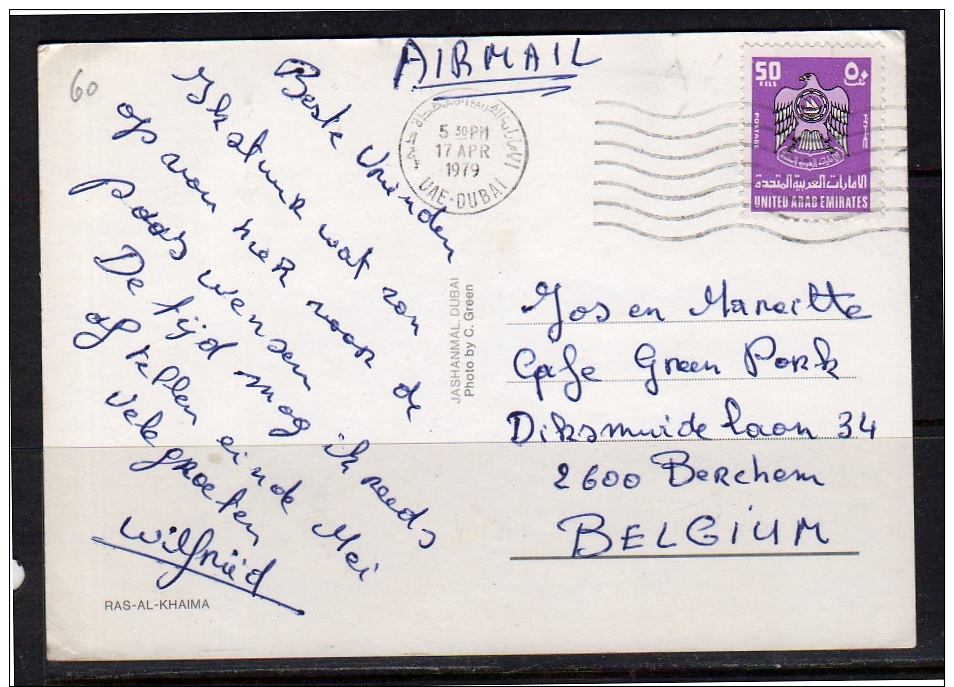 60
AIRMAIL
Beste Vrienden
Ik stuur wat zon
op van hier voor de
paas wensen
De tijd mag ik reeds
of tellen einde Mei
Vele groeten
Wilfried
RAS-AL-KHAIMA
JASHANMAL, DUBAI
Photo by C. Green
5 30 PM
17 APR
1979
UAE-DUBAI
50
FILS
٥٠
POSTAGE
الامارات العربية المتحدة
UNITED ARAB EMIRATES
Jos en Mariette
Cafe Green Park
Diksmuidelaan 34
2600 Berchem
BELGIUM